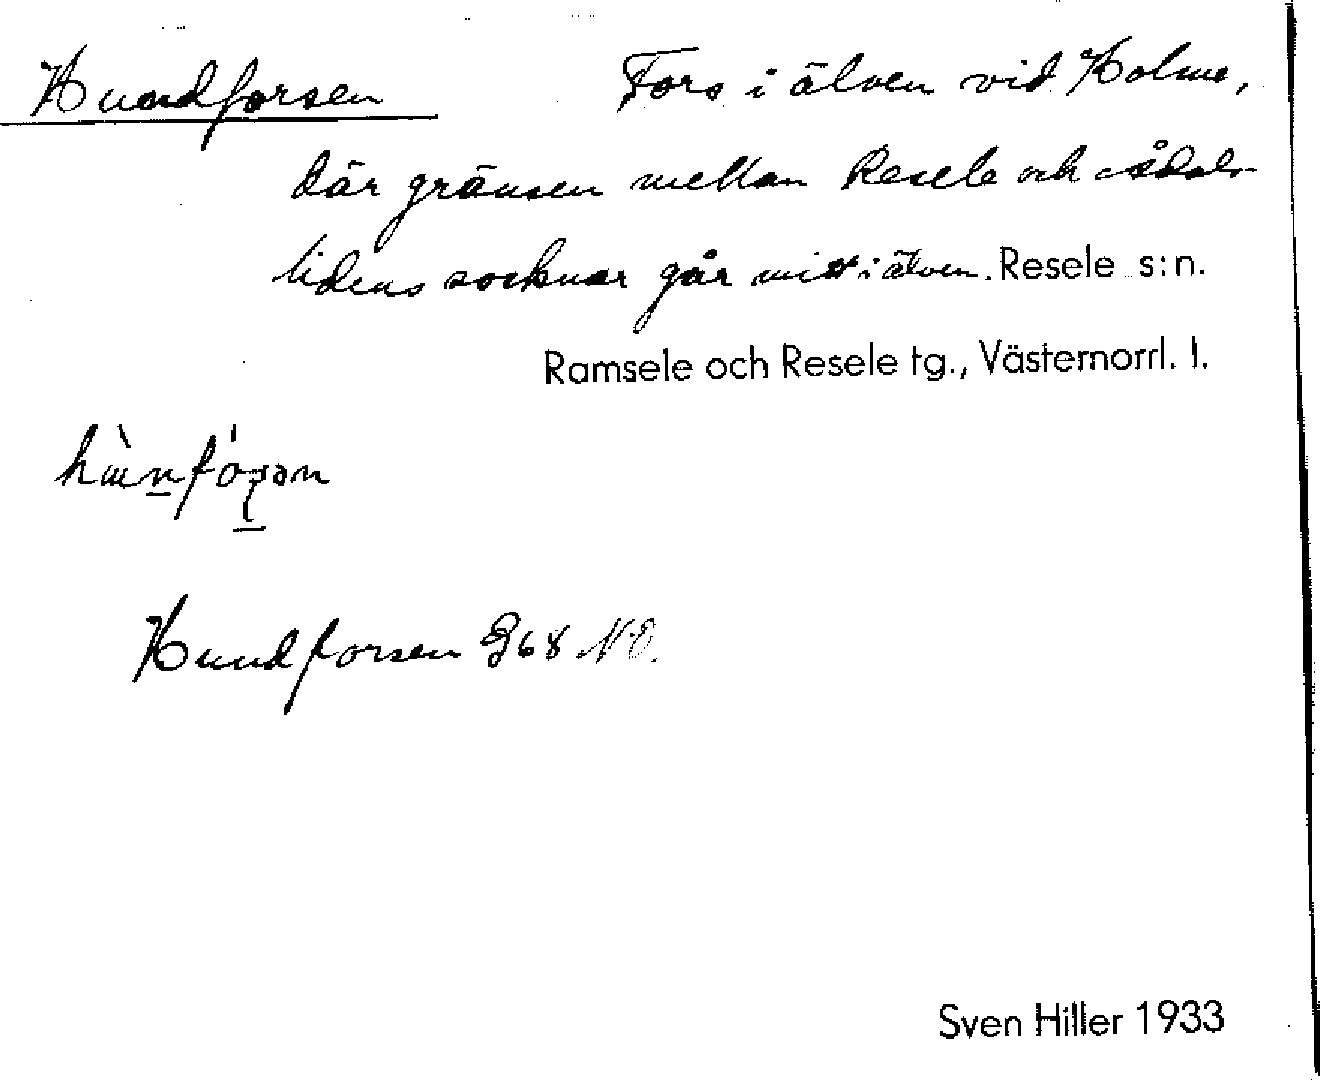 Hundforsen Fors i älven vid Holme,
där gränsen mellan Resele och Ådals-
lidens socknar går mitt i älven. Resele s:n.
Ramsele och Resele tg., Västernorrl. l.
Hundforsen G68 NO.
Sven Hiller 1933